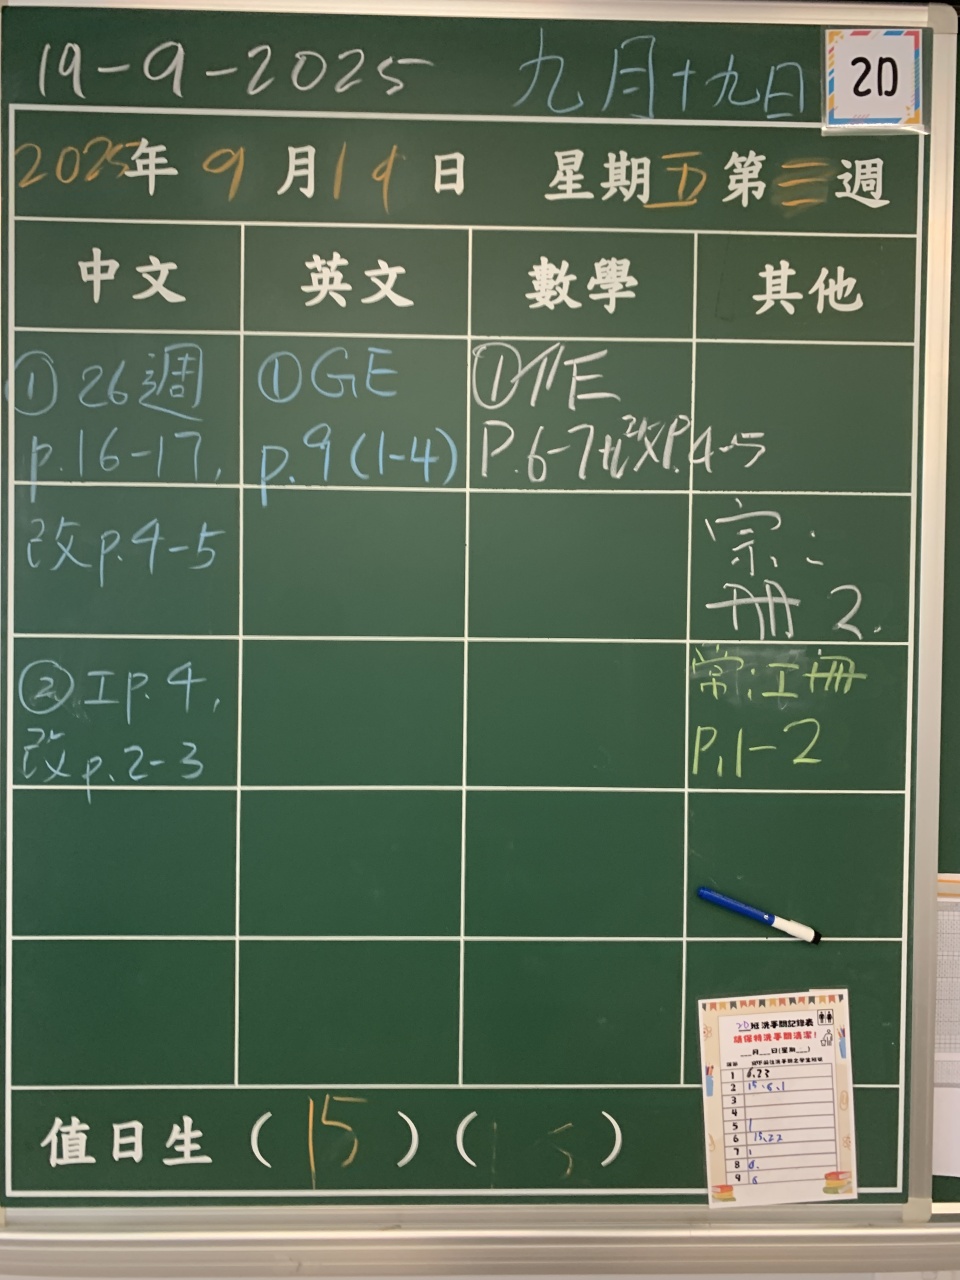 19-9-2025 九月十九日 2D
2025年9月19日 星期五第三週
中文 英文 數學 其他
① 26週 ①GE ①作
p.16-17, p.9(1-4) P.6-7 改P.4-5
改p.4-5 宗:
冊2.
②工p.4, 常:工冊
改p.2-3 P.1-2
值日生(15)( )
2D班洗手間記錄表
請保持洗手間清潔!
___月___日(星期___)
1 6,23
2 15.6.1
3
4
5 1
6 15,22
7 1
8 8.
9 6